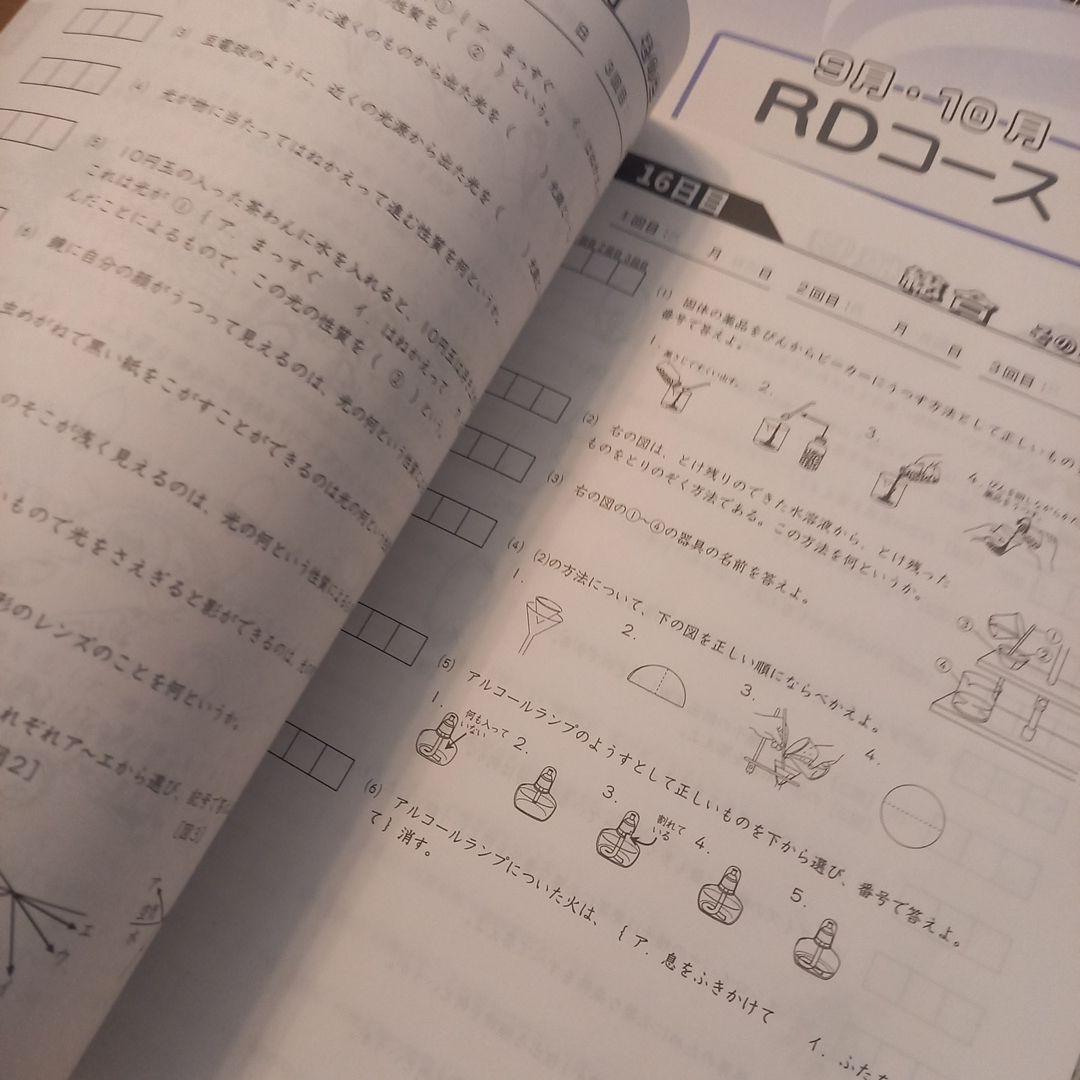 ① { ア. まっすぐ
性質を ( ② ) という。
ように遠くのものから出た光を (
(3) 豆電球のように、近くの光源から出た光を (
(4) 光が物に当たってはねかえって進む性質を何というか。
(5) 10円玉の入った茶わんに水を入れると、10円玉は
これは光が ① { ア. まっすぐ イ. はねかえって
んだことによるもので、この光の性質を ( ② ) という。
(6) 鏡に自分の顔がうつって見えるのは、光の何という性質
虫めがねで黒い紙をこがすことができるのは光の何と
のそこが浅く見えるのは、光の何という性質による
いもので光をさえぎると影ができるのは、
形のレンズのことを何というか。
れぞれア〜エから選び、記号で答
図2]
[図3]
エ
ウ
ア
日
3回目
9月・10月
RDコース
16日目
1回目: 月 日
2回目: 月 日
3回目:
総合
1回目 2回目 3回目
(1) 固体の薬品をびんからビーカーにうつす方法として正しいもの
番号で答えよ。
1.
2.
3.
4.
(2) 右の図は、とけ残りのできた水溶液から、とけ残った
ものをとりのぞく方法である。この方法を何というか。
(3) 右の図の①〜④の器具の名前を答えよ。
①
②
③
④
(4) (2)の方法について、下の図を正しい順にならべかえよ。
1.
2.
3.
4.
(5) アルコールランプのようすとして正しいものを下から選び、番号で答えよ。
1.
何も入って
いない
2.
3.
割れて
いる
4.
5.
(6) アルコールランプについた火は、{ ア. 息をふきかけて イ. ふたを
て } 消す。